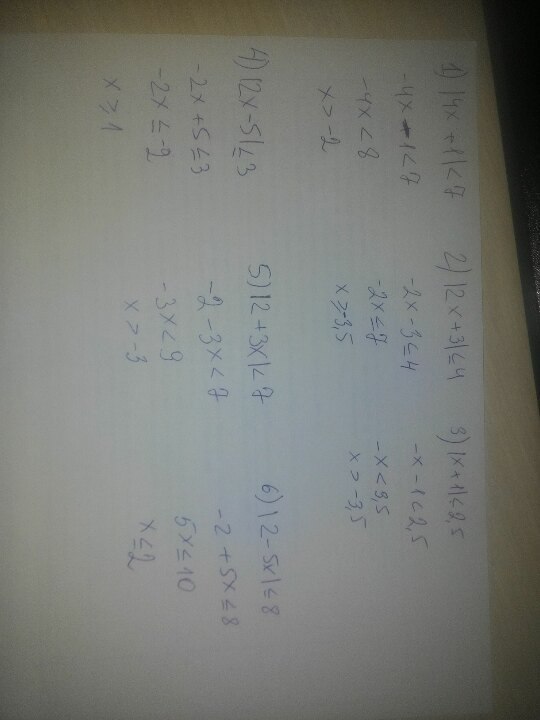 1) |4x + 1| < 7
-4x - 1 < 7
-4x < 8
x > -2
2) |2x + 3| ≤ 4
-2x - 3 ≤ 4
-2x ≤ 7
x ≥ -3,5
3) |x + 1| < 2,5
-x - 1 < 2,5
-x < 3,5
x > -3,5
4) |2x - 5| ≤ 3
-2x + 5 ≤ 3
-2x ≤ -2
x ≥ 1
5) |2 + 3x| < 7
-2 - 3x < 7
-3x < 9
x > -3
6) |2 - 5x| ≤ 8
-2 + 5x ≤ 8
5x ≤ 10
x ≤ 2